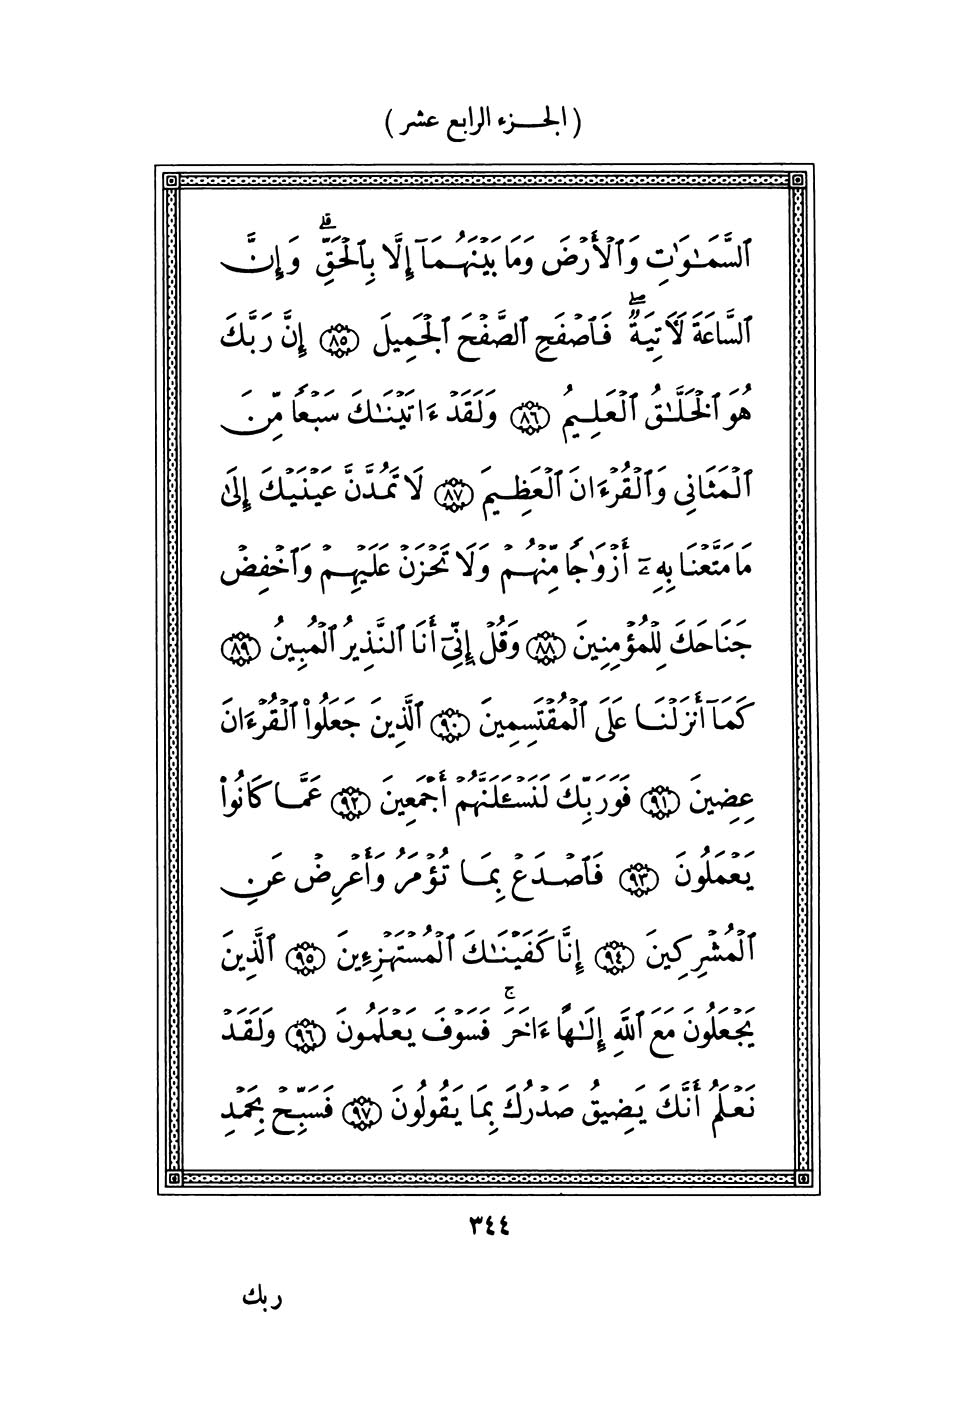 ( الجزء الرابع عشر )
ٱلسَّمَٰوَٰتِ وَٱلْأَرْضَ وَمَا بَيْنَهُمَآ إِلَّا بِٱلْحَقِّ ۗ وَإِنَّ
ٱلسَّاعَةَ لَأَتِيَةٌ ۖ فَٱصْفَحِ ٱلصَّفْحَ ٱلْجَمِيلَ ٨٥ إِنَّ رَبَّكَ
هُوَ ٱلْخَلَّٰقُ ٱلْعَلِيمُ ٨٦ وَلَقَدْ ءَاتَيْنَٰكَ سَبْعًا مِّنَ
ٱلْمَثَانِى وَٱلْقُرْءَانَ ٱلْعَظِيمَ ٨٧ لَا تَمُدَّنَّ عَيْنَيْكَ إِلَىٰ
مَا مَتَّعْنَا بِهِۦٓ أَزْوَٰجًا مِّنْهُمْ وَلَا تَحْزَنْ عَلَيْهِمْ وَٱخْفِضْ
جَنَاحَكَ لِلْمُؤْمِنِينَ ٨٨ وَقُلْ إِنِّىٓ أَنَا ٱلنَّذِيرُ ٱلْمُبِينُ ٨٩
كَمَآ أَنزَلْنَا عَلَى ٱلْمُقْتَسِمِينَ ٩٠ ٱلَّذِينَ جَعَلُوا۟ ٱلْقُرْءَانَ
عِضِينَ ٩١ فَوَرَبِّكَ لَنَسْـَٔلَنَّهُمْ أَجْمَعِينَ ٩٢ عَمَّا كَانُوا۟
يَعْمَلُونَ ٩٣ فَٱصْدَعْ بِمَا تُؤْمَرُ وَأَعْرِضْ عَنِ
ٱلْمُشْرِكِينَ ٩٤ إِنَّا كَفَيْنَٰكَ ٱلْمُسْتَهْزِءِينَ ٩٥ ٱلَّذِينَ
يَجْعَلُونَ مَعَ ٱللَّهِ إِلَٰهًا ءَاخَرَ ۚ فَسَوْفَ يَعْلَمُونَ ٩٦ وَلَقَدْ
نَعْلَمُ أَنَّكَ يَضِيقُ صَدْرُكَ بِمَا يَقُولُونَ ٩٧ فَسَبِّحْ بِحَمْدِ
٣٤٤
ربك